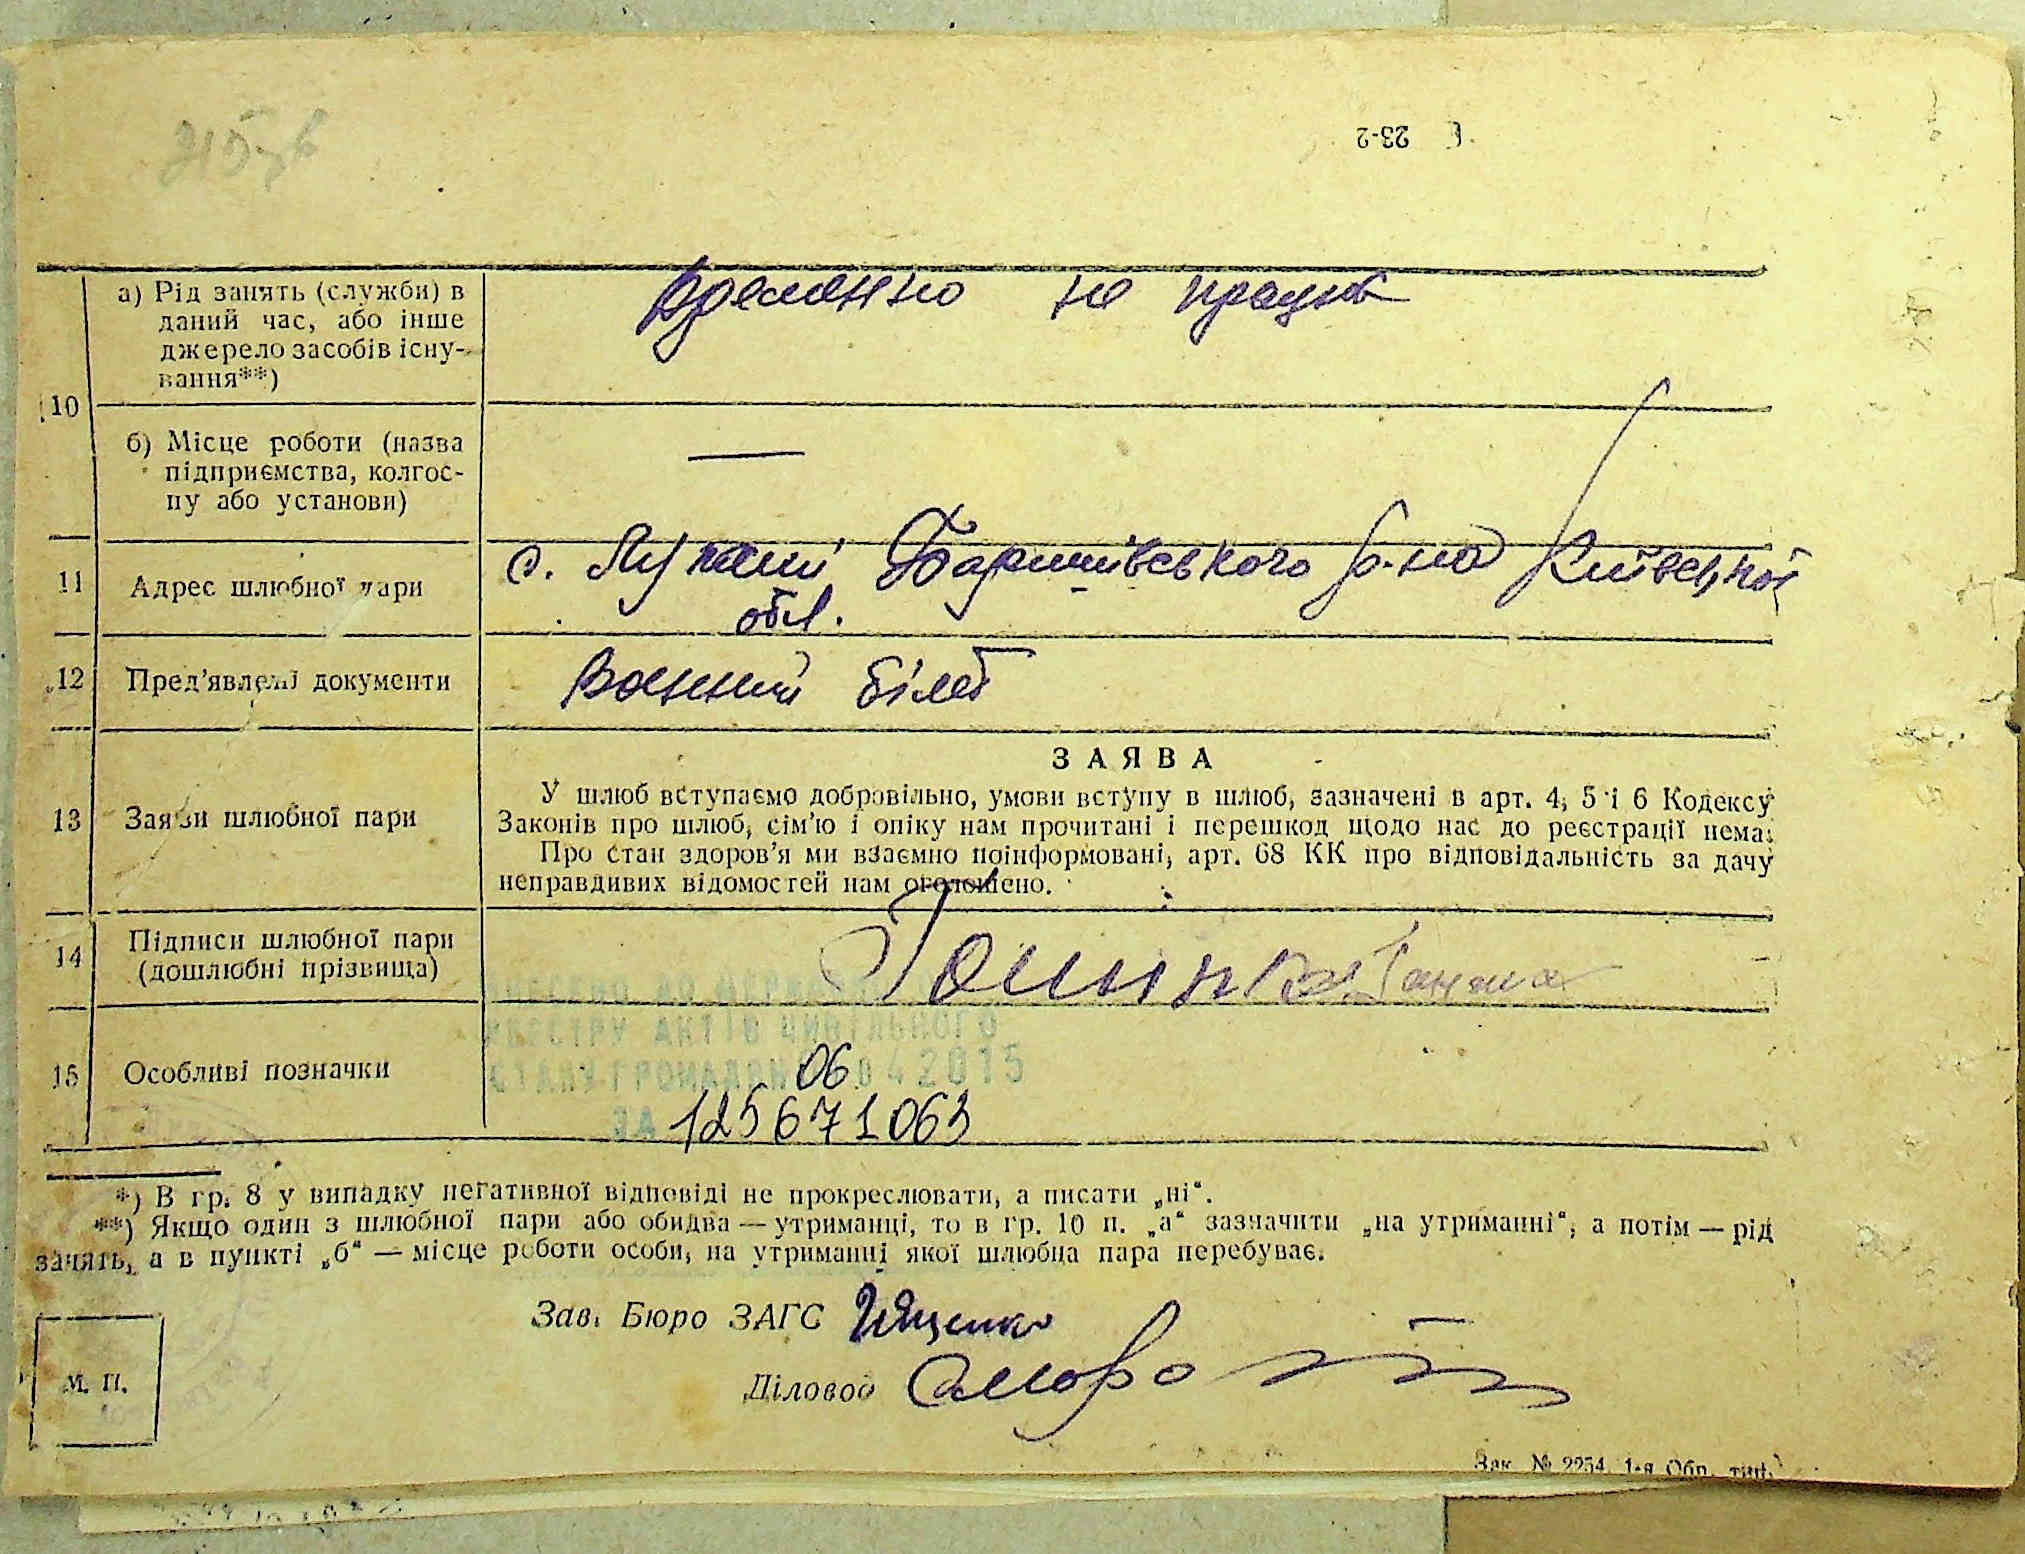 23-2
а) Рід занять (служби) в
даний час, або інше
джерело засобів існу-
вання**)
временно не працює
10
б) Місце роботи (назва
підприємства, колгос-
пу або установи)
—
11 Адрес шлюбної пари
с. Лупаші Баришівського р-на Київської
обл.
12 Пред’явлені документи
Воєнний білет
13 Заяви шлюбної пари
ЗАЯВА
У шлюб вступаємо добровільно, умови вступу в шлюб, зазначені в арт. 4, 5 і 6 Кодексу
Законів про шлюб, сім’ю і опіку нам прочитані і перешкод щодо нас до реєстрації нема.
Про стан здоров’я ми взаємно поінформовані, арт. 68 КК про відповідальність за дачу
неправдивих відомостей нам оголошено.
14 Підписи шлюбної пари
(дошлюбні прізвища)
ВНЕСЕНО ДО ДЕРЖАВНОГО
РЕЄСТРУ АКТІВ ЦИВІЛЬНОГО
15 Особливі позначки
СТАНУ ГРОМАДЯН 06 04 2015
ЗА 125671063
*) В гр. 8 у випадку негативної відповіді не прокреслювати, а писати „ні“.
**) Якщо один з шлюбної пари або обидва — утриманці, то в гр. 10 п. „а“ зазначити „на утриманні“, а потім — рід
занять, а в пункті „б“ — місце роботи особи, на утриманні якої шлюбна пара перебуває.
Зав. Бюро ЗАГС Яценко
М. П.
Діловод
Зак. № 2254. 1-я Обр. тип.